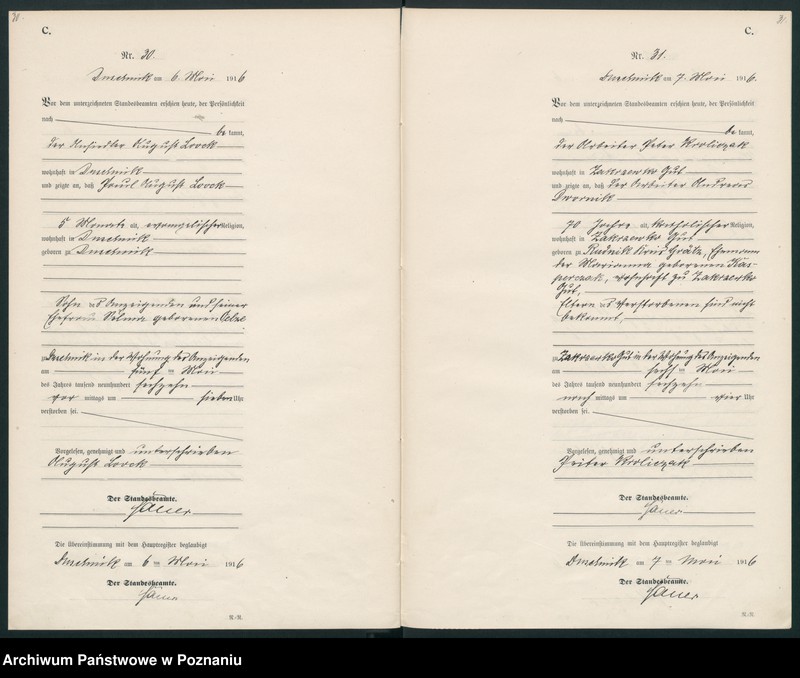 30.
C.
Nr. 30.
am 6. Mai 1916
Vor dem unterzeichneten Standesbeamten erschien heute, der Persönlichkeit
nach
be kannt,
der Ansiedler August Lorck
wohnhaft in
und zeigte an, daß Paul August Lorck
5 Monate alt, evangelischer Religion,
wohnhaft in
geboren zu
Sohn des Anzeigenden und seiner
Ehefrau Selma geborenen
zu in der Wohnung des Anzeigenden
am fünf ten Mai
des Jahres tausend neunhundert sechzehn
vor mittags um sieben Uhr
verstorben sei.
Vorgelesen, genehmigt und unterschrieben
August Lorck
Der Standesbeamte.
Die Übereinstimmung mit dem Hauptregister beglaubigt
am 6 ten Mai 1916
Der Standesbeamte.
R.-R.
31.
C.
Nr. 31.
am 7. Mai 1916.
Vor dem unterzeichneten Standesbeamten erschien heute, der Persönlichkeit
nach
be kannt,
der Arbeiter Peter
wohnhaft in Zakrzewko Gut
und zeigte an, daß der Arbeiter Andreas
Dwornik
70 Jahre alt, katholischer Religion,
wohnhaft in Zakrzewko Gut
geboren zu Rudnik Kreis Grätz, Ehemann
der Marianna geborenen Kas-
perczak, wohnhaft zu Zakrzewko
Gut,
Eltern des Verstorbenen sind nicht
bekannt,
zu Zakrzewko Gut in der Wohnung des Anzeigenden
am sechs ten Mai
des Jahres tausend neunhundert sechzehn
nach mittags um vier Uhr
verstorben sei.
Vorgelesen, genehmigt und unterschrieben
Der Standesbeamte.
Die Übereinstimmung mit dem Hauptregister beglaubigt
am 7 ten Mai 1916
Der Standesbeamte.
R.-R.
Archiwum Państwowe w Poznaniu